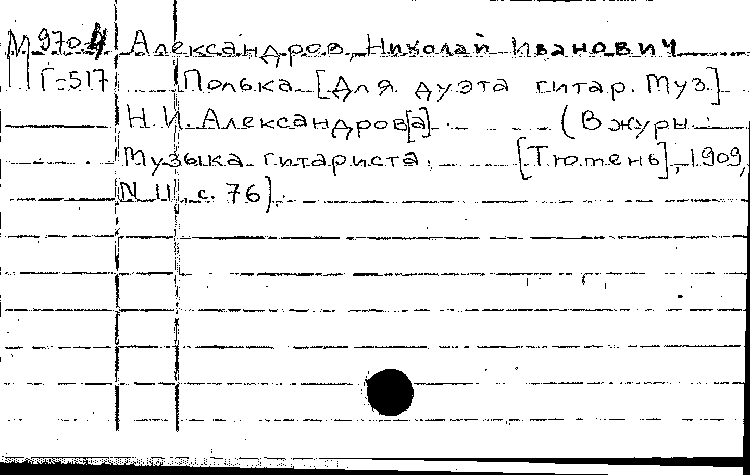 М 970 Александров, Николай Иванович
Г-517 Полька [Для дуэта гитар. Муз.]
Н.И. Александров[а]. (В журн.:
Музыка гитариста. [Тюмень], 1909,
N 11, с. 76).